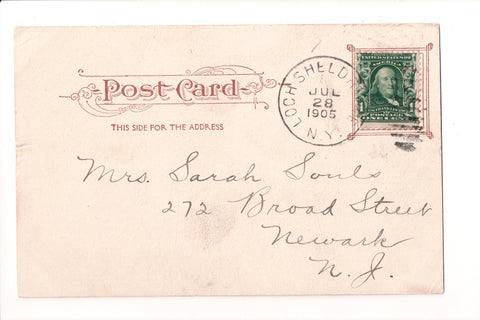 Post Card
THIS SIDE FOR THE ADDRESS
LOCH SHELD
JUL
28
1905
N.Y.
UNITED STATES OF
AMERICA
POSTAGE
ONE CENT
1
Mrs. Sarah Souls
272 Broad Street
Newark
N. J.